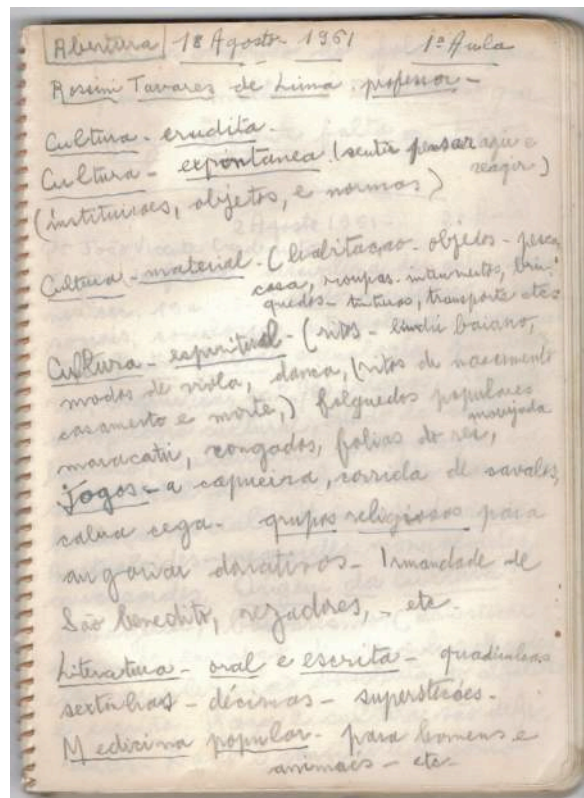 Abertura 18 Agosto - 1961 1ª Aula
Rossini Tavares de Lima professor -
Cultura - erudita -
Cultura - expontanea (sentir pensar agir e
reagir)
(instituicoes, objetos, e normas)
Cultura - material - (habitação - objetos - pesca,
casa, roupas - intrumentos, brin-
quedos - tinturas, transporte etc
Cultura - espiritual - (ritos - lundú baiano,
modas de viola, danca, (ritos de nascimento
casamento e morte,) folguedos populares
maracatú, congados, folias de rei, marujada
Jogos - a capueira, corrida de cavalos,
cabra cega - grupos religiosos para
angariar donativos - Irmandade de
São Benedito, rezadores, - etc -
Literatura - oral e escrita - quadrinhas
sextilhas - décimas - supersticões -
Medicina popular - para homens e
animaes - etc -